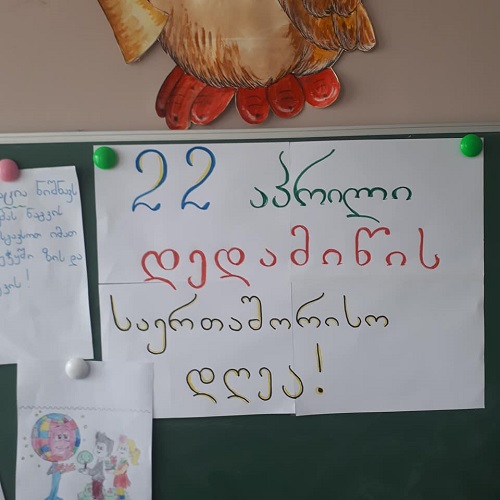 ნიშნავს
22 აპრილი
დედამიწის
საერთაშორისო
დღეა!